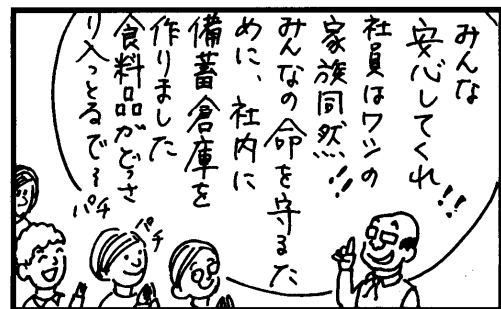 みんな
安心してくれ!!
社員はワシの
家族同然!!
みんなの命を守るた
めに、社内に
備蓄倉庫を
作りました
食料品がどっさ
り入っとるで〜
パチ
パチ